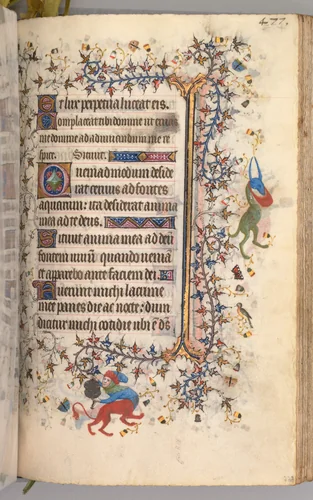 477.
Et lux perpetua luceat eis.
Complaceat tibi domine ut eruas
me domine ad adiuvandum me re
spice. Sitivit.
Quemadmodum deside
rat cervus ad fontes
aquarum: ita desiderat anima
mea ad te deus.
Sitivit anima mea ad deū
fontem vivū: quando veniā
et apparebo ante faciem dei.
Fuerunt michi lacrime
mee panes die ac nocte: dum
dicitur michi cotidie ubi ē ds̄